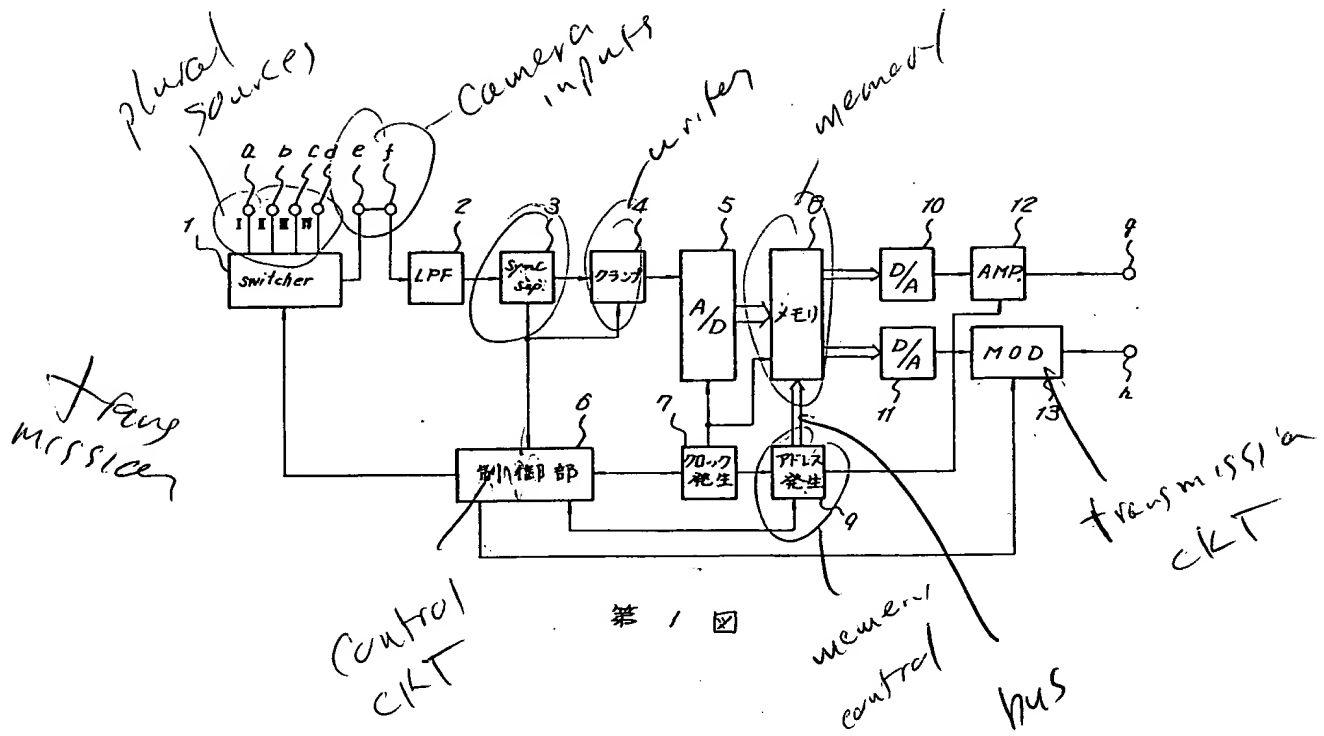 plural
sources
camera
inputs
writer
memory
a b c d e f
I II III IV
1
switcher
2
LPF
3
sync
sep.
4
クランプ
5
A/D
8
メモリ
10
D/A
12
AMP.
g
11
D/A
13
MOD
h
trans
mission
6
制御部
7
クロック
発生
9
アドレス
発生
transmission
CKT
control
CKT
第 1 図
memory
control
bus